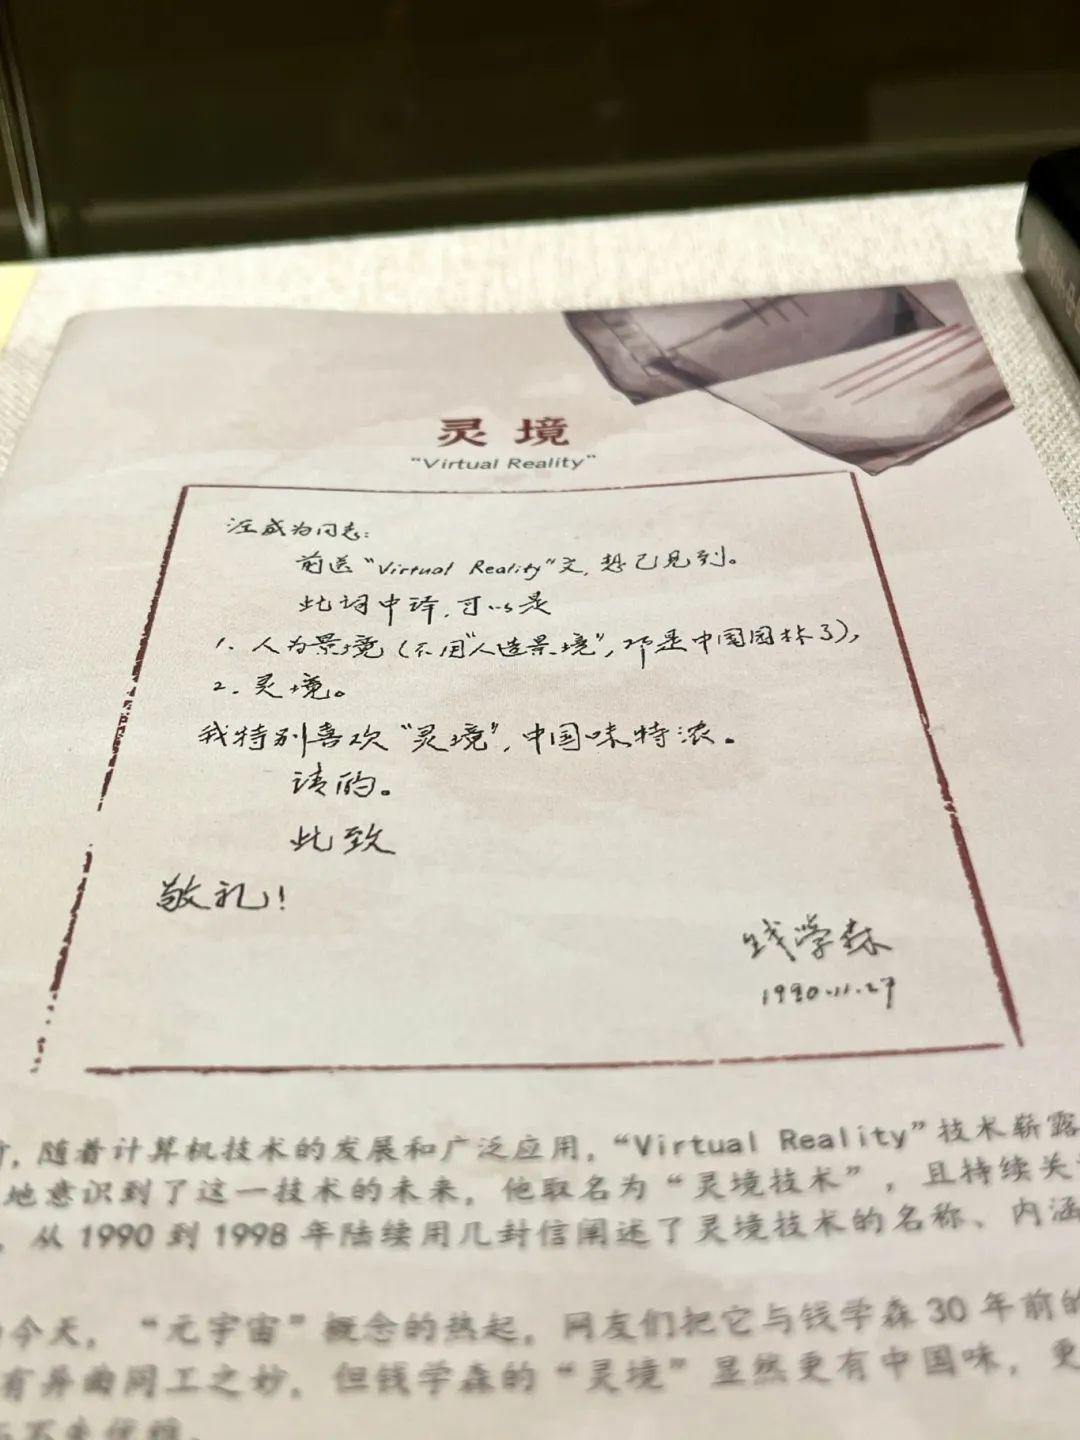 灵境
“Virtual Reality”
汪成为同志:
前送“Virtual Reality”文,想已见到。
此词中译,可以是
1. 人为景境(不用“人造景境”,那是中国园林了),
2. 灵境。
我特别喜欢“灵境”,中国味特浓。
请酌。
此致
敬礼!
钱学森
1990.11.27
,随着计算机技术的发展和广泛应用,“Virtual Reality”技术崭露
地意识到了这一技术的未来,他取名为“灵境技术”,且持续关
。从1990到1998年陆续用几封信阐述了灵境技术的名称、内涵
今天,“元宇宙”概念的热起,网友们把它与钱学森30年前的
有异曲同工之妙,但钱学森的“灵境”显然更有中国味,更